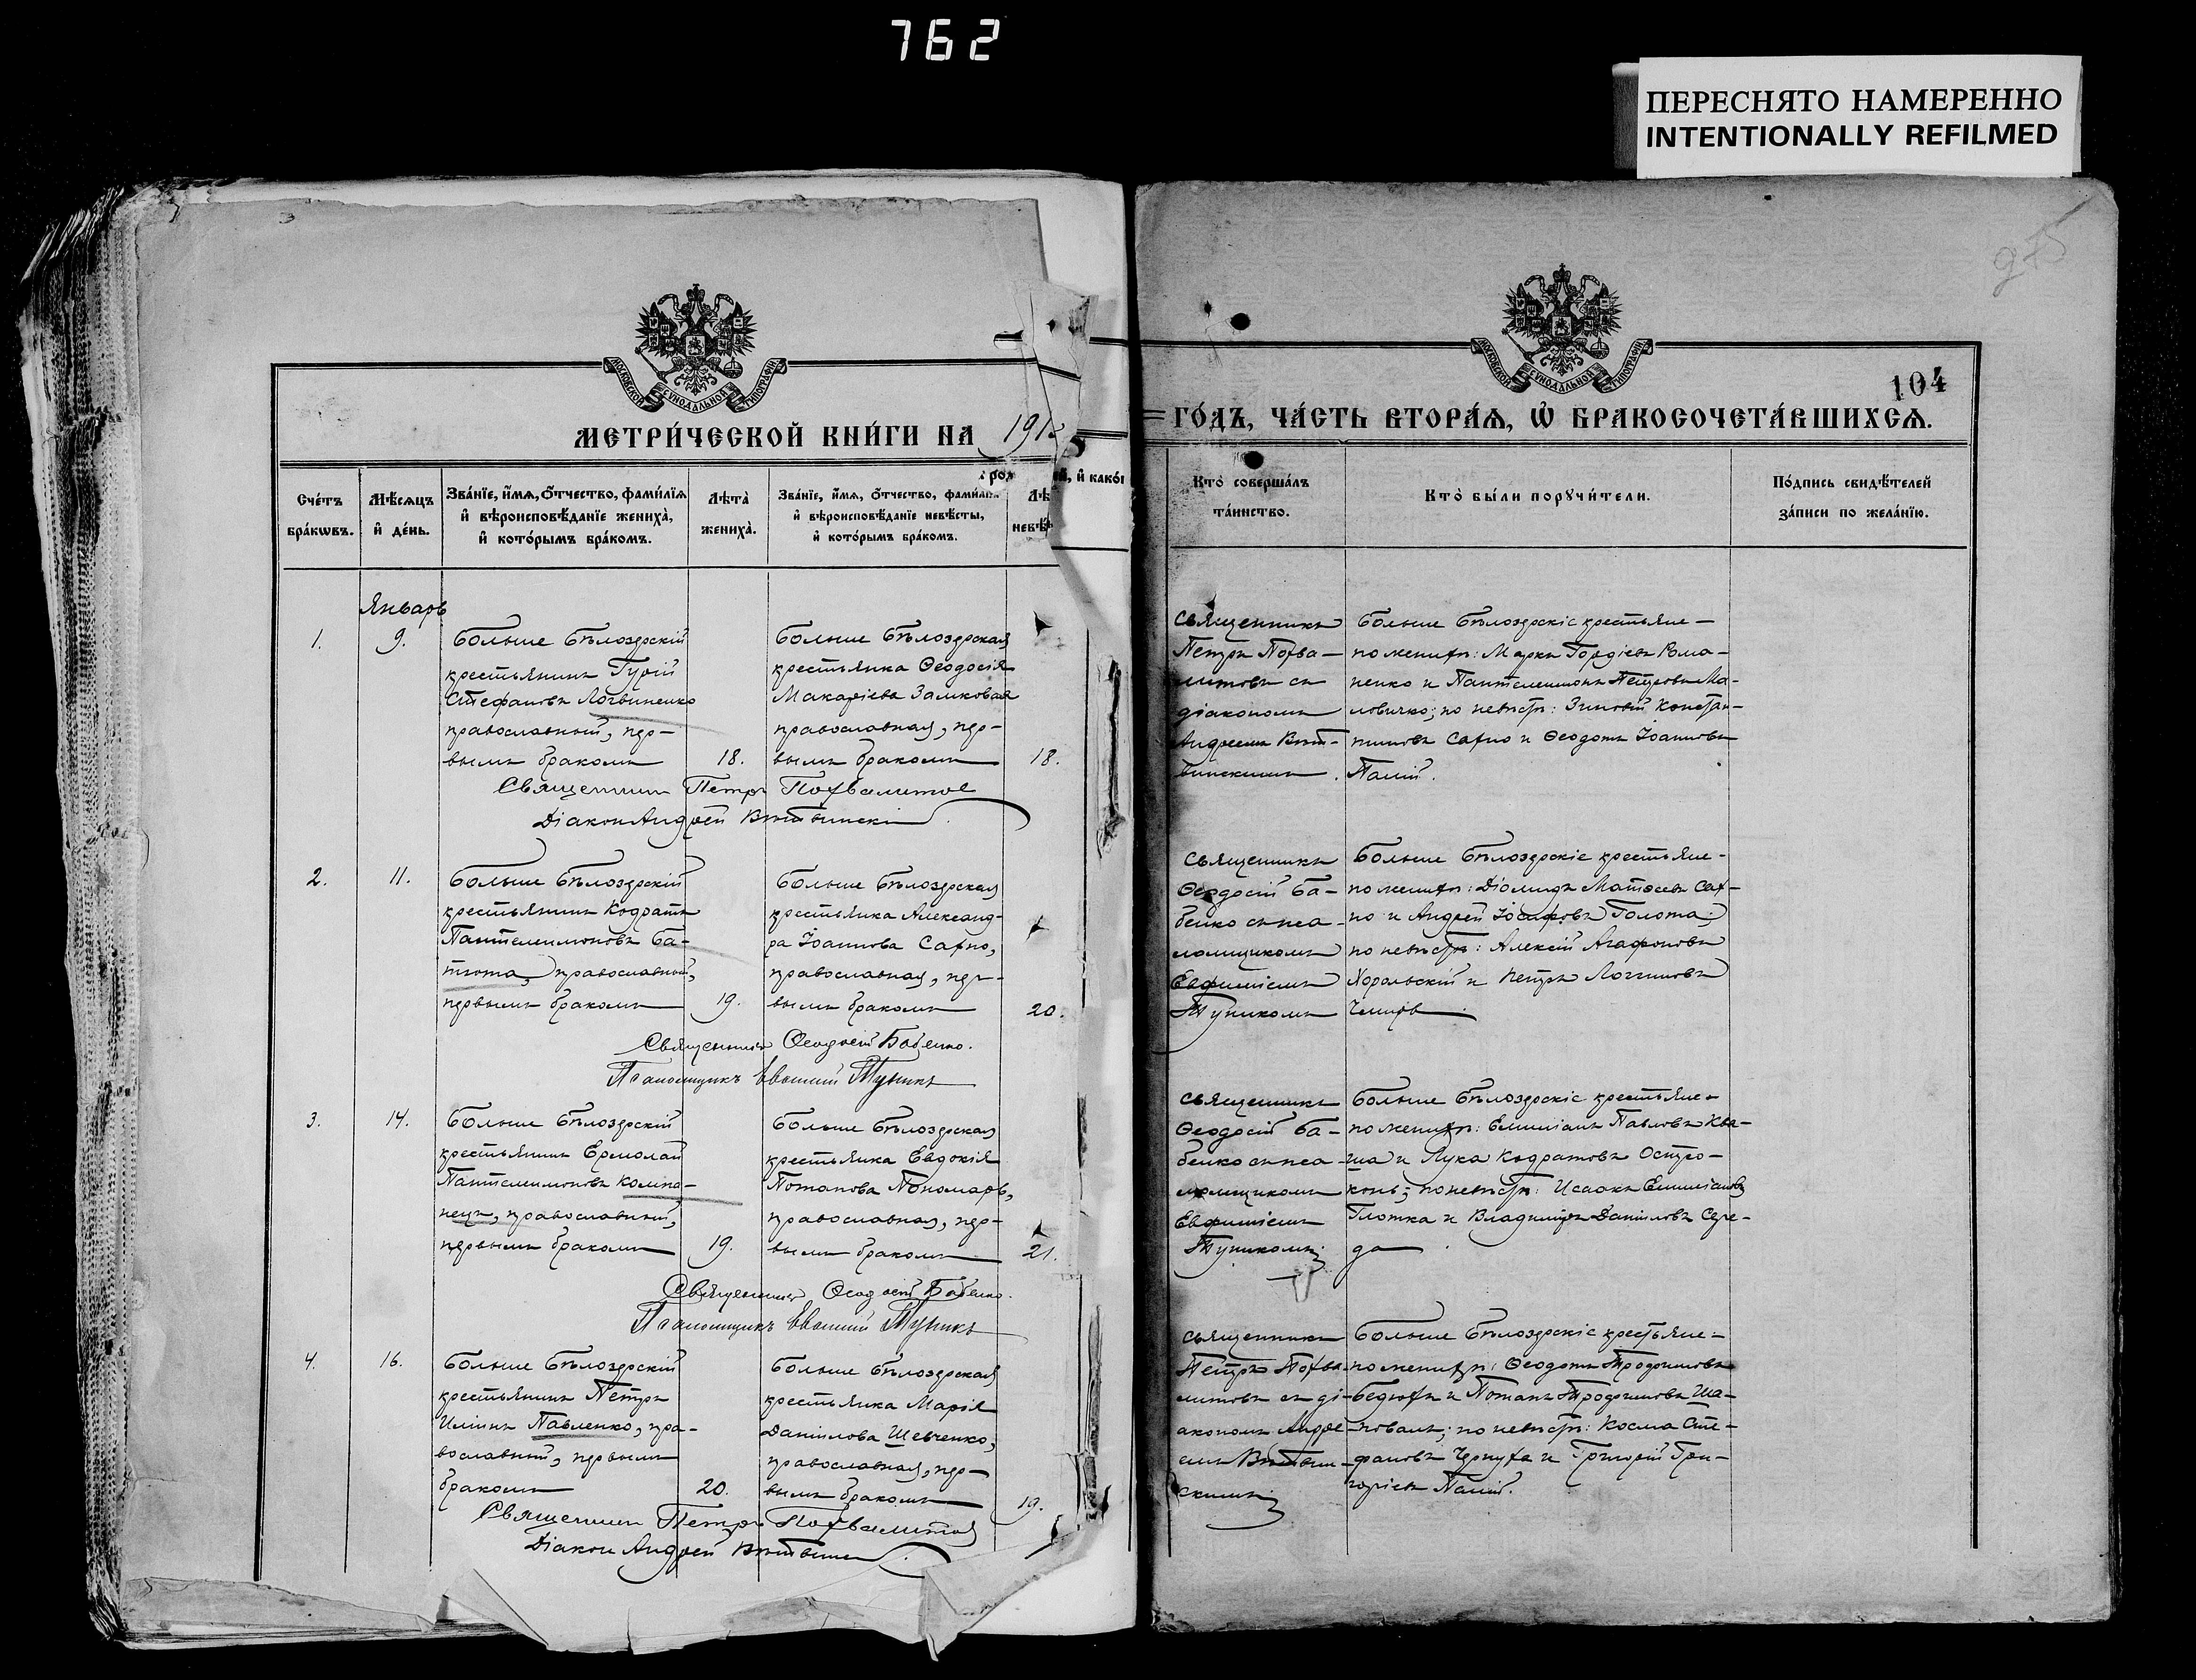 762
ПЕРЕСНЯТО НАМЕРЕННО
INTENTIONALLY REFILMED
975
104
МОСКОВСКОЙ СѴНОДАЛЬНОЙ ТИПОГРАФІИ
МОСКОВСКОЙ СѴНОДАЛЬНОЙ ТИПОГРАФІИ
МЕТРИ́ЧЕСКОЙ КНИ́ГИ НА 191
ГО́ДЪ, ЧА́СТЬ ВТОРА́Ѧ, Ѡ҆ БРАКОСОЧЕТА́ВШИХСѦ.
Сче́тъ
бра́кѡвъ.
Мѣ́сѧцъ
и҆ де́нь.
Зва́нїе, и҆́мѧ, ѻ҆́тчество, фами́лїѧ
и҆ вѣроисповѣ́данїе жениха̀,
и҆ кото́рымъ бра́комъ.
Лѣта̀
жениха̀.
Зва́нїе, и҆́мѧ, ѻ҆́тчество, фами́лїѧ
и҆ вѣроисповѣ́данїе невѣ́сты,
и҆ кото́рымъ бра́комъ.
Лѣ
невѣ́
и҆ како́
Кто̀ соверша́лъ
та́инство.
Кто̀ бы́ли порꙋчи́тели.
По́дпись свидѣ́телей
за́писи по жела́нїю.
Январь
1.
9.
Больше Бѣлозерскій
крестьянинъ Гурій
Стефановъ Логвиненко
православный, пер-
вымъ бракомъ
18.
Больше Бѣлозерская
крестьянка Ѳеодосія
Макаріева Замковая
православная, пер-
вымъ бракомъ
18.
Священникъ
Петръ Похва-
литовъ съ
діакономъ
Андреемъ Вит-
винскимъ.
Больше Бѣлозерскіе крестьяне-
по женихѣ: Маркъ Гордіевъ Рома-
ненко и Пантелеимонъ Петровъ Ма-
ловичко; по невѣстѣ: Зиновій Констан-
тиновъ Сахно и Ѳеодотъ Іоанновъ
Палій.
Священникъ Петръ Похвалитов
Діаконъ Андрей Витвински
2.
11.
Больше Бѣлозерскій
крестьянинъ Кодратъ
Пантелеимоновъ Ба-
тюта, православный,
первымъ бракомъ
19.
Больше Бѣлозерская
крестьянка Александ-
ра Іоаннова Сахно,
православная, пер-
вымъ бракомъ
20.
Священникъ
Ѳеодосій Ба-
бенко съ пса-
ломщикомъ
Евфиміемъ
Тупикомъ
Больше Бѣлозерскіе крестьяне-
по женихѣ: Діомидъ Матѳеевъ Сах-
но и Андрей Іосифовъ Голота;
по невѣстѣ: Алексій Агафоновъ
Хорольскій и Петръ Логгиновъ
Священникъ Ѳеодосій Бабенко.
Псаломщикъ Евѳимій Тупикъ
3.
14.
Больше Бѣлозерскій
крестьянинъ Ермолай
Пантелеимоновъ Компа-
нецъ, православный,
первымъ бракомъ
19.
Больше Бѣлозерская
крестьянка Евдокія
Потапова Пономарь,
православная, пер-
вымъ бракомъ
21.
Священникъ
Ѳеодосій Ба-
бенко съ пса-
ломщикомъ
Евфиміемъ
Тупикомъ;
Больше Бѣлозерскіе крестьяне-
по женихѣ: Емиліанъ Павловъ Ква-
ша и Лука Кодратовъ Остро-
конь; по невѣстѣ: Исаакъ Емиліановъ
Глотка и Владиміръ Даніиловъ Сере-
да.
Священникъ Ѳеодосій Бабенко.
Псаломщикъ Евѳимій Тупикъ
4.
16.
Больше Бѣлозерскій
крестьянинъ Петръ
Иліинъ Павленко, пра-
вославный, первымъ
бракомъ
20.
Больше Бѣлозерская
крестьянка Марія
Даніилова Шевченко,
православная, пер-
вымъ бракомъ
19.
Священникъ
Петръ Похва-
литовъ съ ді-
акономъ Андре-
емъ Витвин-
скимъ;
Больше Бѣлозерскіе крестьяне-
по женихѣ: Ѳеодотъ Трофимовъ
Бедюхъ и Потапъ Трофимовъ Ша-
повалъ; по невѣстѣ: Косма Сте-
фановъ Чернуха и Григорій Гри-
горіевъ Палій.
Священникъ Петръ Похвалитов
Діаконъ Андрей Витвин